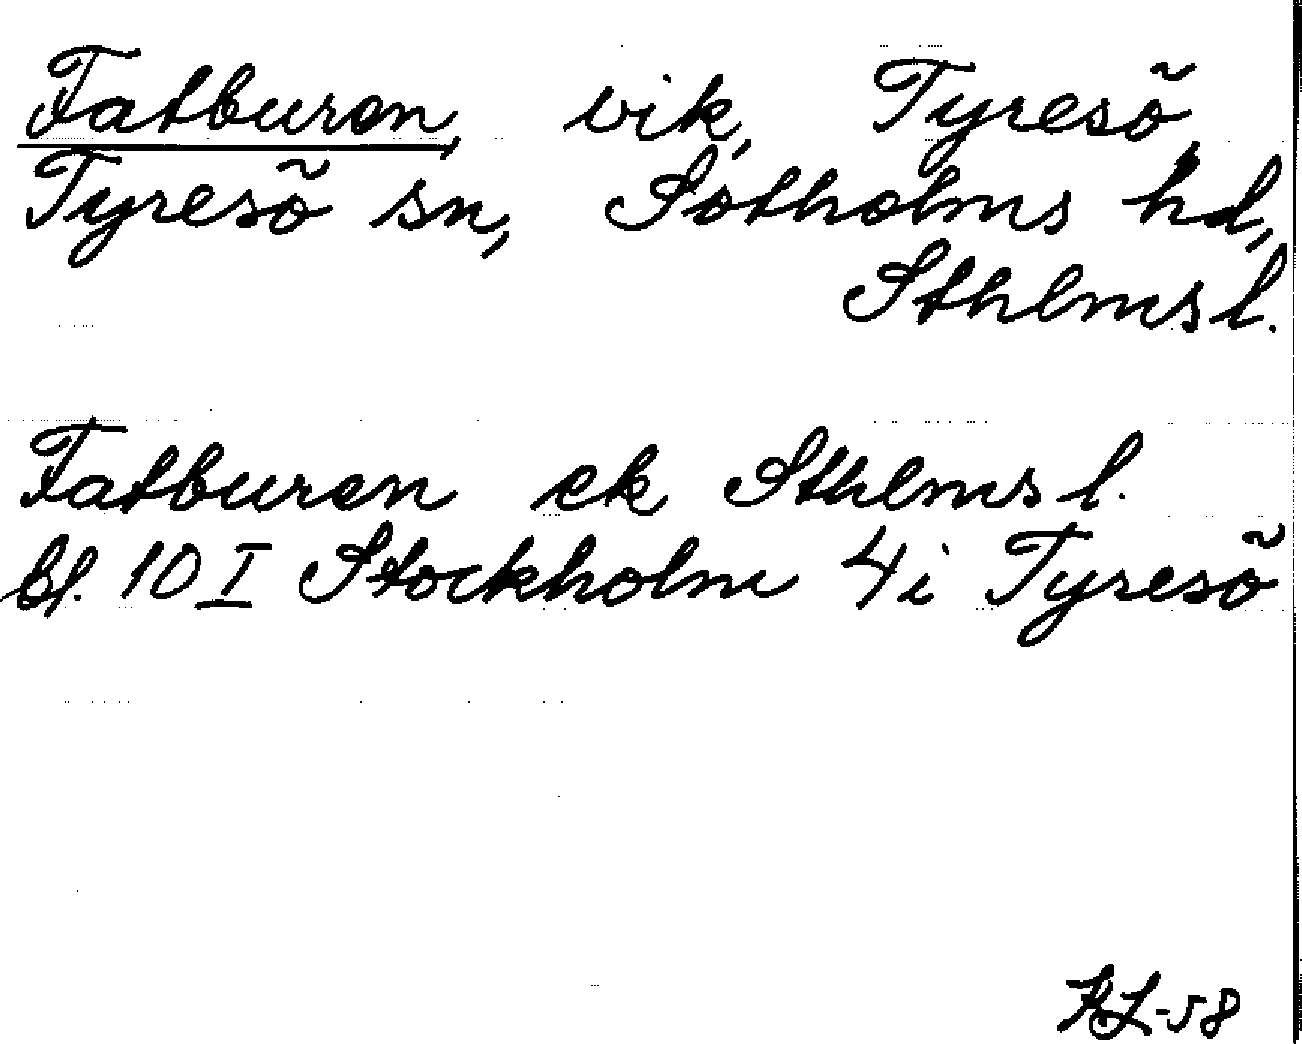 Fatburen, vik, Tyresö,
Tyresö sn, Sotholms hd,
Sthlms l.
Fatburen ek Sthlms l.
bl. 10 I Stockholm 4i Tyresö
HL-58